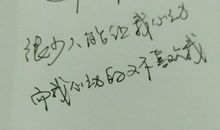 很少人能让我心动
而我心动的又不喜欢我